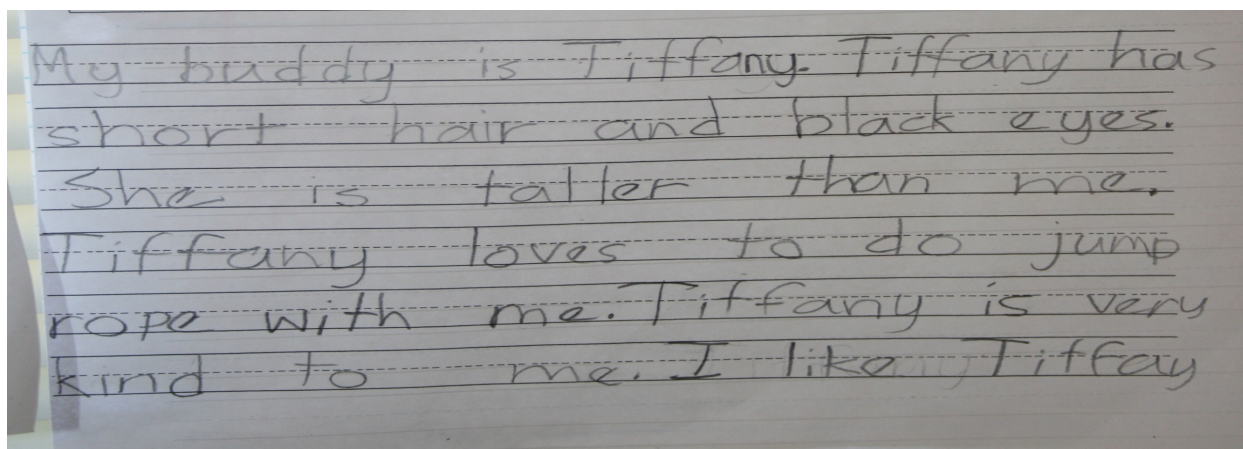 My buddy is Tiffany. Tiffany has
short hair and black eyes.
She is taller than me.
Tiffany loves to do jump
rope with me. Tiffany is very
kind to me. I like Tiffay